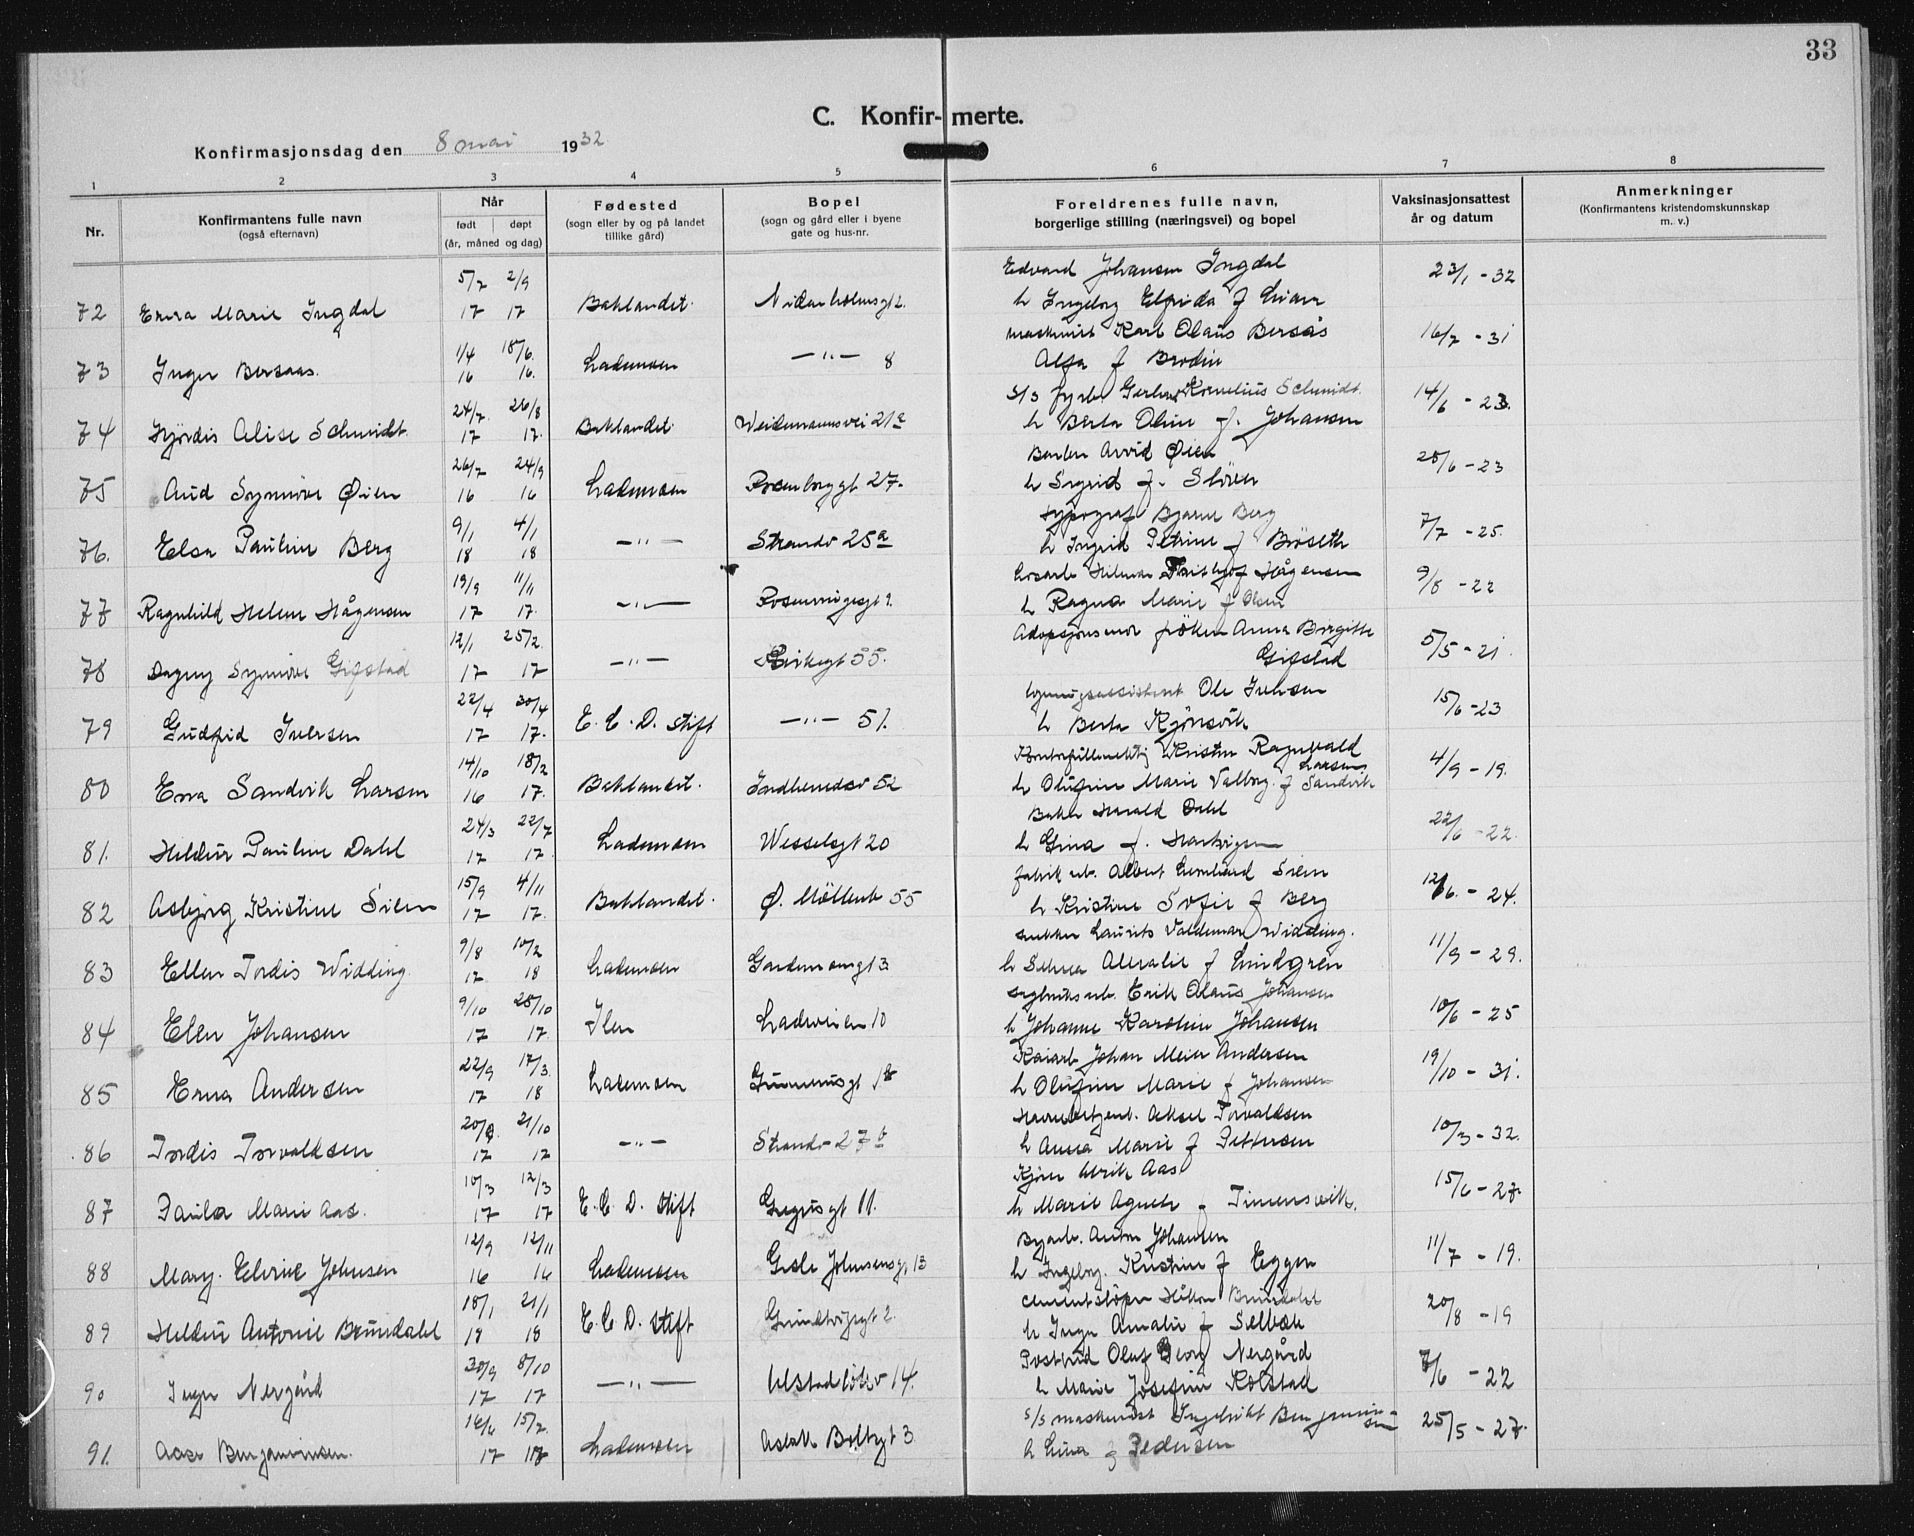 33
C. Konfir-merte.
Konfirmasjonsdag den 8 mai 1932
1 2 3 4 5 6 7 8
Nr. Konfirmantens fulle navn (også efternavn) Når født døpt (år, måned og dag) Fødested (sogn eller by og på landet tillike gård) Bopel (sogn og gård eller i byene gate og hus-nr. Foreldrenes fulle navn, borgerlige stilling (næringsvei) og bopel Vaksinasjonsattest år og datum Anmerkninger (Konfirmantens kristendomskunnskap m. v.)
5/7 2/9 Edvard Johansen Ingdal 23/1 - 32
72 Erna Marie Ingdal 17 17 Baklandet Nidarholmsgt 2. h Ingeborg Elfrida f
1/4 18/6. maskinist Karl Olaus Bersås 16/7 - 31
73 Inger Bersaas. 16 16. Lademoen —"— 8 Alfa f Brodin
24/7 26/8 s/s fyrb. Kornelius Schmidt. 14/6 - 23.
74 Hjördis Alise Schmidt 17 17. Baklandet Weidemannsvei 21a h Berta Oline f. Johansen
26/7 24/9 Arvid Øien 28/6 - 23
75 Aud Synnöve Øien 16 16 Lademoen Rosenborggt 27. h Sigrid f. Stören
9/1 4/1 typograf Bjarne Berg 7/7 - 25.
76. Elsa Pauline Berg 18 18 —"— Strandv 25a h Ingrid Petrine f Bröseth
19/9 11/11 Hilmar Fritjof Hågensen 9/8 - 22
77 Ragnhild Helene Hågensen 17 17. —"— h Ragna Marie f Olsen
12/1 25/2. Adopsjonsmor fröken Anna Birgitte 5/5 - 21.
78 Dagny Synnöve Gifstad 17 17 —"— Kirkegt 55. Gifstad
22/4 30/4 Ole Iversen 15/6 - 23
79 Gudfrid Iversen 17 17. E. C. D. stift —"— 51. h Berta Kjönsvik
14/10 18/2 Kristen Ragnvald Larsen 4/9 - 19.
80 Erna Sandvik Larsen 16 17. Baklandet. Indherredsv 52 h Olufine Marie Valborg f Sandvik
24/3 22/7 Baker Harald Dahl 22/6 - 22.
81. Heldur Pauline Dahl 17 17. Lademoen Wesselsgt 20 h Gina f.
15/9 4/11 fabrik arb. Albert Leonhard Sien 12/6. - 24.
82 Asbjörg Kristine Sien 17 17. Baklandet. Ø. Möllenb 55 h Kristine Sofie f Berg
9/8 10/2 snekker Laurits Valdemar Widding. 11/9 - 29.
83 Ellen Tordis Widding 17 18 Lademoen Gardemoengt 3 h Selma Amalie f Lindgren
9/10 28/10 Erik Olaus Johansen 10/6 - 25
84 Ellen Johansen 17 17. Ilen Ladeveien 10 h Johanne Karoline Johansen
22/9 17/3. Kaiarb Johan Meier Andersen 19/10 - 31.
85 Erna Andersen 17 18 Lademoen Gunnerusgt h Olufine Marie f Johansen
20/9. 21/10 Aksel Torvaldsen 10/3 - 32.
86 Tordis Torvaldsen 17 17 —"— Strandv 27b h Anna Marie f Pettersen
10/3 12/3 Ulrik Aas 15/6 - 27.
87 Paula Marie Aas. 17 17 E. C. D. stift Gregusgt 11. h Marie Agnete f
12/9 12/11 Byarb. Anton Johansen 11/7 - 19.
88 Mary. Elvine Johnsen 16 16 Lademoen Gisle Johnsensgt 13 h Ingeborg. Kristine f Eggen
18/1 21/1 cementstöper Håkon Brundahl 20/8 - 19
89 Heldur Antonie Brundahl 18 18 E. C. D. stift Grundtvigsgt 2. h Inga Amalie f Selbæk
30/9 8/10 Postbud Olaf Georg Nergård 7/6 - 22
90 Inger Nergård 17 17 —"— Ulstadlökkv 14. h Marie Josefine Kolstad
16/6 15/2. s/s maskinist Ingebrikt Benjaminsen 25/5 - 27.
91. Aase Benjaminsen. 17 18 Lademoen Aslak Boltsgt 3. h Lina f Pedersen